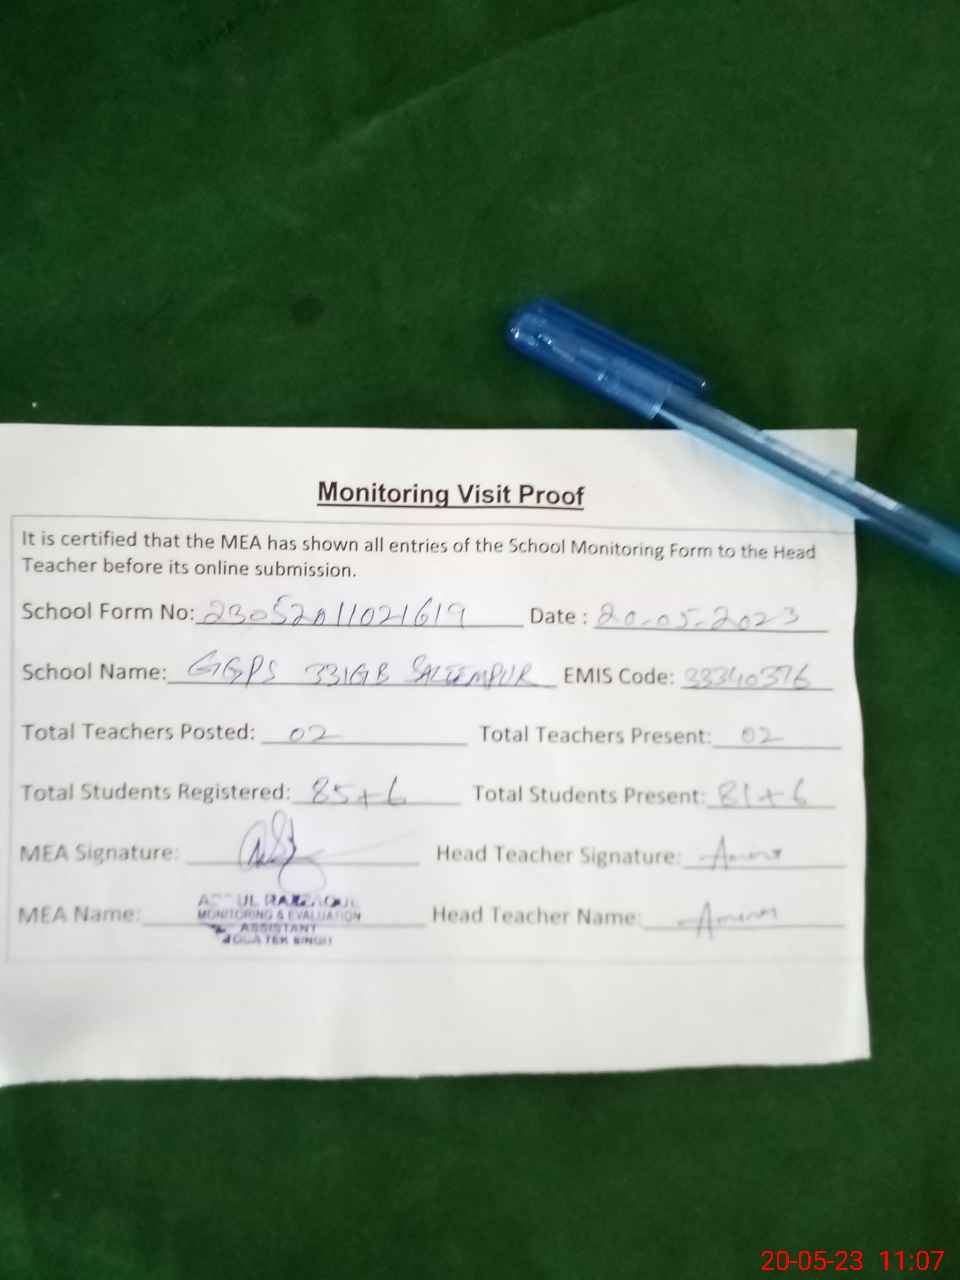 Monitoring Visit Proof
It is certified that the MEA has shown all entries of the School Monitoring Form to the Head
Teacher before its online submission.
School Form No: 23052011021619 Date : 20-05-2023
School Name: GGPS 331GB SALEEMPUR EMIS Code: 33340376
Total Teachers Posted: 02 Total Teachers Present: 02
Total Students Registered: 85+6 Total Students Present: 81+6
MEA Signature: Head Teacher Signature:
MEA Name: Head Teacher Name:
MONITORING & EVALUATION
ASSISTANT
TEK SINGH
20-05-23 11:07